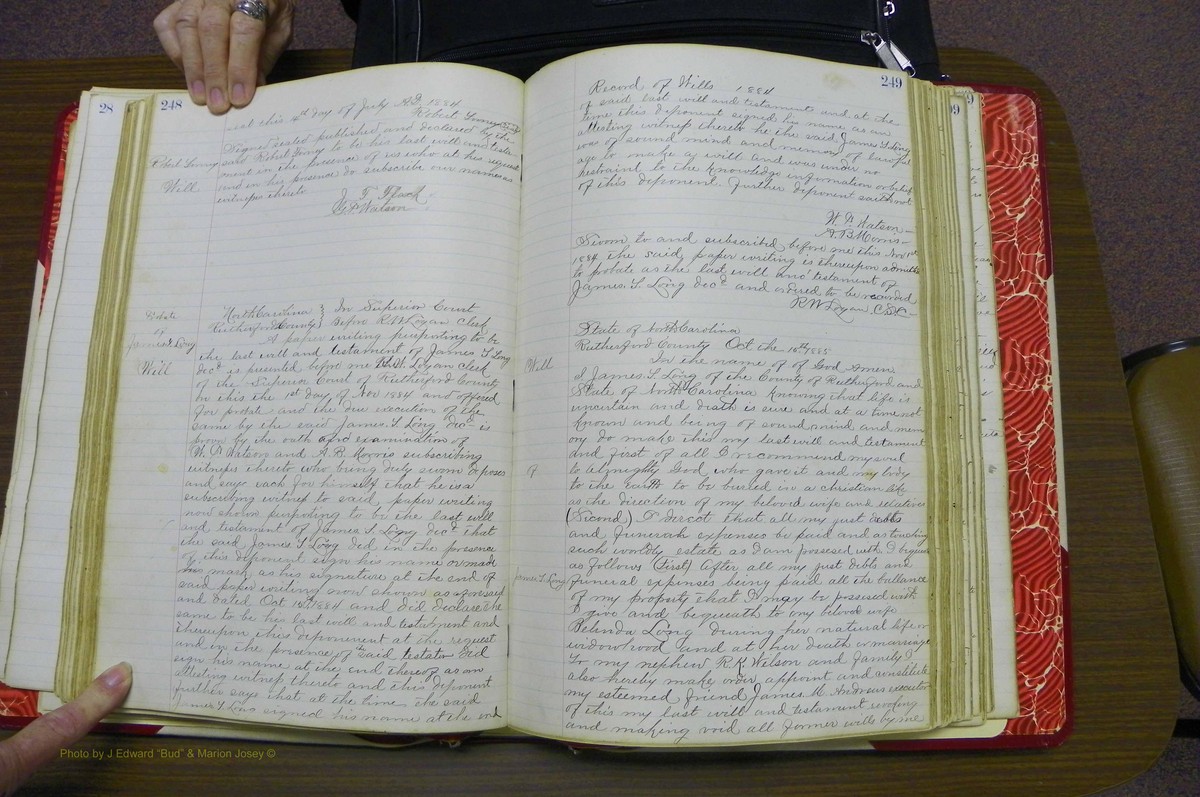 28
248
seal this 4th day of July A.D. 1884
Robert
Signed sealed published and declared by the
said Robert to be his last will and testa
ment in the presence of us who at his request
and in his presence do subscribe our names as
witness thereto
Will
G. P. Watson
North Carolina } In Superior Court
Rutherford County } Before R. W. Logan Clerk
Probate
of
James S. Long
Will
A paper writing purporting to be
the last will and testament of James S. Long
decd is presented before me R. W. Logan Clerk
of the Superior Court of Rutherford County
on this the 1st day of Nov 1884 and offered
for probate and the due execution of the
same by the said James S. Long decd is
proven by the oath and examination of
and A. B. Morris subscribing
witness thereto who being duly sworn deposes
and says each for himself that he is a
subscribing witness to said paper writing
now shown purporting to be the last will
and testament of James S. Long decd that
the said James S. Long did in the presence
of this deponent sign his name or made
his mark as his signature at the end of
said paper writing now shown as aforesaid
and dated Oct 1884 and did declare the
same to be his last will and testament and
thereupon this deponent at the request
and in the presence of said testator did
sign his name at the end thereof as an
attesting witness thereto and this deponent
further says that at the time the said
James S. Long signed his name at the end
249
Record of Wills 1884
of said last will and testament and at the
time this deponent signed his name as an
attesting witness thereto he the said James S. Long
was of sound mind and memory of lawful
age to make a will and was under no
restraint to the knowledge information or belief
of this deponent. Further deponent saith not
Watson
A. B. Morris
Sworn to and subscribed before me this Nov 1st
1884 the said paper writing is thereupon admitted
to probate as the last will and testament of
James. S. Long decd and ordered to be recorded
R W Logan C.S.C.
State of North Carolina
Rutherford County Oct the 1885
Will
In the name of of God Amen
I James S. Long of the County of Rutherford and
State of North Carolina knowing that life is
uncertain and death is sure and at a time not
known and being of sound mind and mem
ory do make this my last will and testament
and first of all I recommend my soul
to Almighty God who gave it and my body
to the earth to be buried in a christian like
as the direction of my beloved wife and relatives
(Second) I dercot that all my just debts
and funerah expenses be paid and as touching
such worldly estate as I am possesed with I bequeath
as follows (First) After all my just debts and
James S. Long
funeral expenses being paid all the ballance
of my property that I may be possesed with
I give and bequeath to my beloved wife
Belinda Long during her natural life or
widowhood and at her death or marriage
to my nephew R. K. Wilson and family I
also hereby make appoint and constitute
my esteemed friend James M. Andrews executor
of this my last will and testament revoking
and making void all former wills by me
Photo by J Edward "Bud" & Marion Josey ©